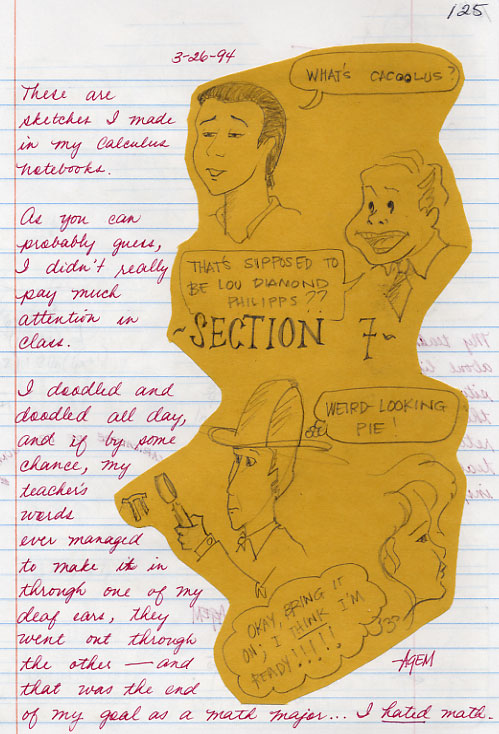 125
3-26-94
These are
sketches I made
in my Calculus
notebooks.
As you can
probably guess,
I didn't really
pay much
attention in
class.
I doodled and
doodled all day,
and if by some
chance, my
teacher's
words
ever managed
to make it in
through one of my
deaf ears, they
went out through
the other — and
that was the end
of my goal as a math major... I hated math.
WHAT'S CACOOLUS?
THAT'S SUPPOSED TO
BE LOU DIAMOND
PHILIPPS??
~SECTION 7~
WEIRD-LOOKING
PIE!
π
OKAY, BRING IT
ON; I THINK I'M
READY!!!!!
AGEM